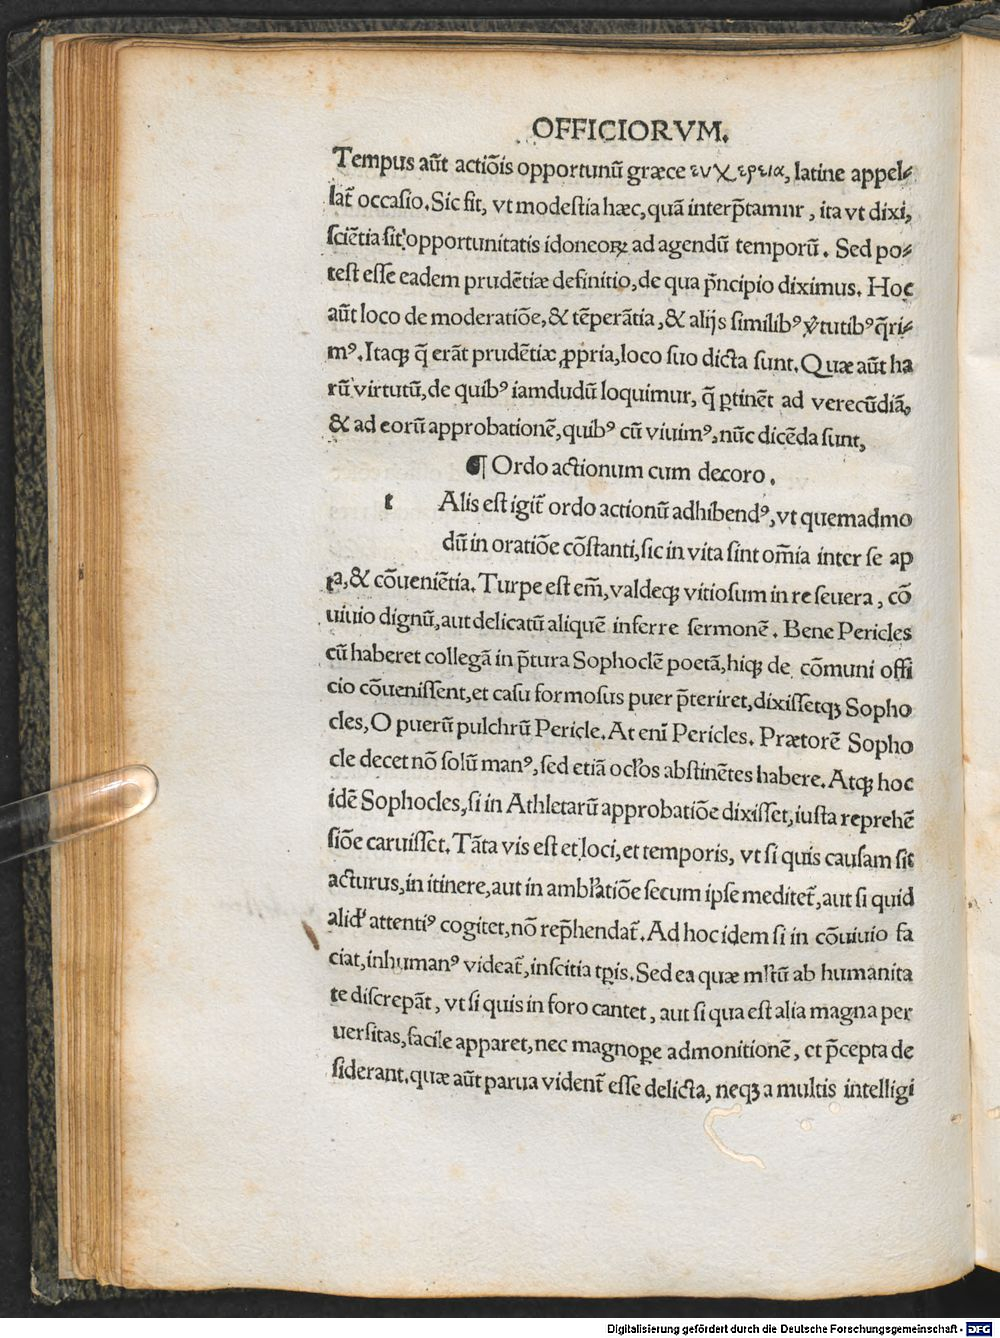 OFFICIORVM.
Tempus aūt actiõis opportunũ græce ευχερεια, latine appel⸗
lat̃ occasio. Sic fit, vt modestia hæc, quã interp̃tamnr, ita vt dixi,
sciẽtia sit opportunitatis idoneoꝝ ad agendũ temporũ. Sed po⸗
test esse eadem prudẽtiæ definitio, de qua p̃ncipio diximus. Hoc
aūt loco de moderatiõe, & tẽperãtia, & alijs similibꝰ v̾tutibꝰ q̃ri⸗
mꝰ. Itaqꝫ q̃ erãt prudẽtiæ ꝓpria, loco suo dicta sunt. Quæ aūt ha
rũ virtutũ, de quibꝰ iamdudũ loquimur, q̃ ꝑtinẽt ad verecũdiã,
& ad eorũ approbationẽ, quibꝰ cũ viuimꝰ, nũc dicẽda sunt,
¶ Ordo actionum cum decoro.
t Alis est igit̃ ordo actionũ adhibendꝰ, vt quemadmo
dũ in oratiõe cõstanti, sic in vita sint om̃ia inter se ap
ta, & cõueniẽtia. Turpe est em̃, valdeqꝫ vitiosum in re seuera, cõ
uiuio dignũ, aut delicatũ aliquẽ inferre sermonẽ. Bene Pericles
cũ haberet collegã in p̃tura Sophoclẽ poetã, hiqꝫ de cõmuni offi
cio cõuenissent, et casu formosus puer p̃teriret, dixissetqꝫ Sopho
cles, O puerũ pulchrũ Pericle. At enī Pericles. Prætorẽ Sopho
cle decet nõ solũ manꝰ, sed etiã ocl̃os abstinẽtes habere. Atqꝫ hoc
idẽ Sophocles, si in Athletarũ approbatiõe dixisset, iusta reprehẽ
siõe caruisset. Tãta vis est et loci, et temporis, vt si quis causam sit
acturus, in itinere, aut in ambl̃atiõe secum ipse meditet̃, aut si quid
alid̾ attentiꝰ cogitet, nõ rep̃hendat̃. Ad hoc idem si in cõuiuio fa
ciat, inhumanꝰ videat̃, inscitia tꝑis. Sed ea quæ ml̃tũ ab humanita
te discrepãt, vt si quis in foro cantet, aut si qua est alia magna per
uersitas, facile apparet, nec magnoꝑe admonitionẽ, et p̃cepta de
siderant. quæ aūt parua vident̃ esse delicta, neqꝫ a multis intelligi
Digitalisierung gefördert durch die Deutsche Forschungsgemeinschaft - DFG